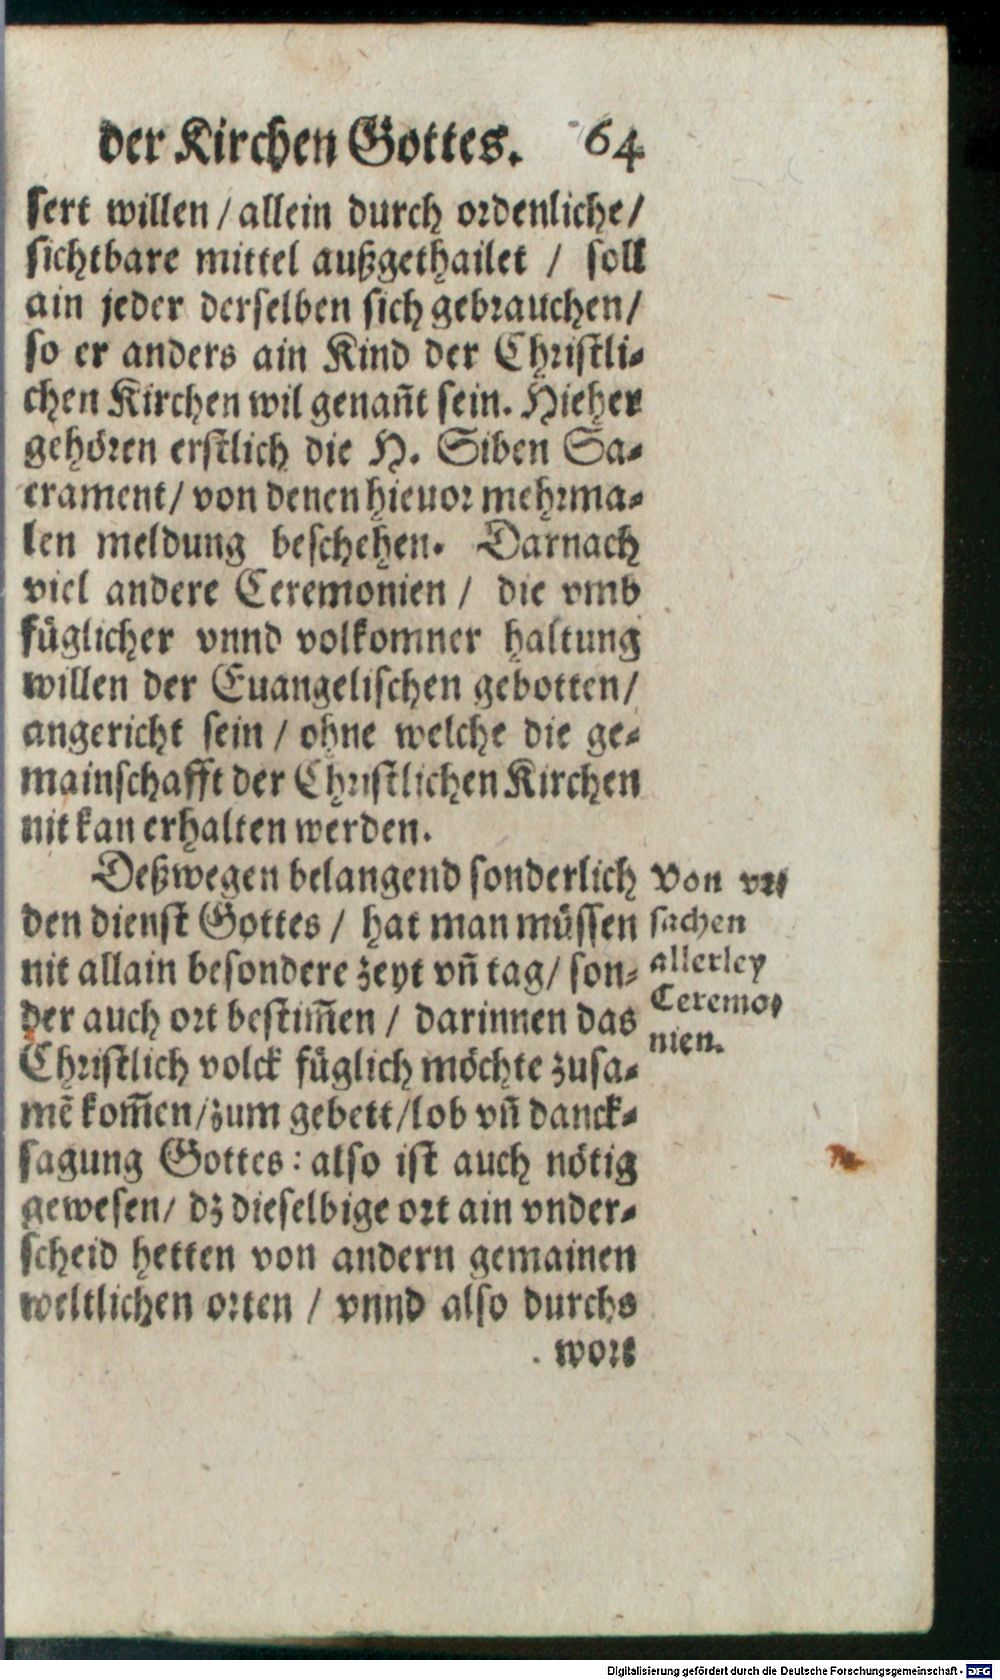 der Kirchen Gottes. 64
sert willen / allein durch ordenliche /
sichtbare mittel außgethailet / soll
ain jeder derselben sich gebrauchen /
so er anders ain Kind der Christli-
chen Kirchen wil genañt sein. Hieher
gehören erstlich die H. Siben Sa-
crament / von denen hieuor mehrma-
len meldung beschehen. Darnach
viel andere Ceremonien / die vmb
füglicher vnnd volkomner haltung
willen der Euangelischen gebotten /
angericht sein / ohne welche die ge-
mainschafft der Christlichen Kirchen
nit kan erhalten werden.
Deßwegen belangend sonderlich
den dienst Gottes / hat man müssen
nit allain besondere zeyt vñ tag / son-
der auch ort bestim̃en / darinnen das
Christlich volck füglich möchte zusa-
mẽ kom̃en / zum gebett / lob vñ danck-
sagung Gottes : also ist auch nötig
gewesen / dz dieselbige ort ain vnder-
scheid hetten von andern gemainen
weltlichen orten / vnnd also durchs
wort
Von vr-
sachen
allerley
Ceremo-
nien.
Digitalisierung gefördert durch die Deutsche Forschungsgemeinschaft - DFG